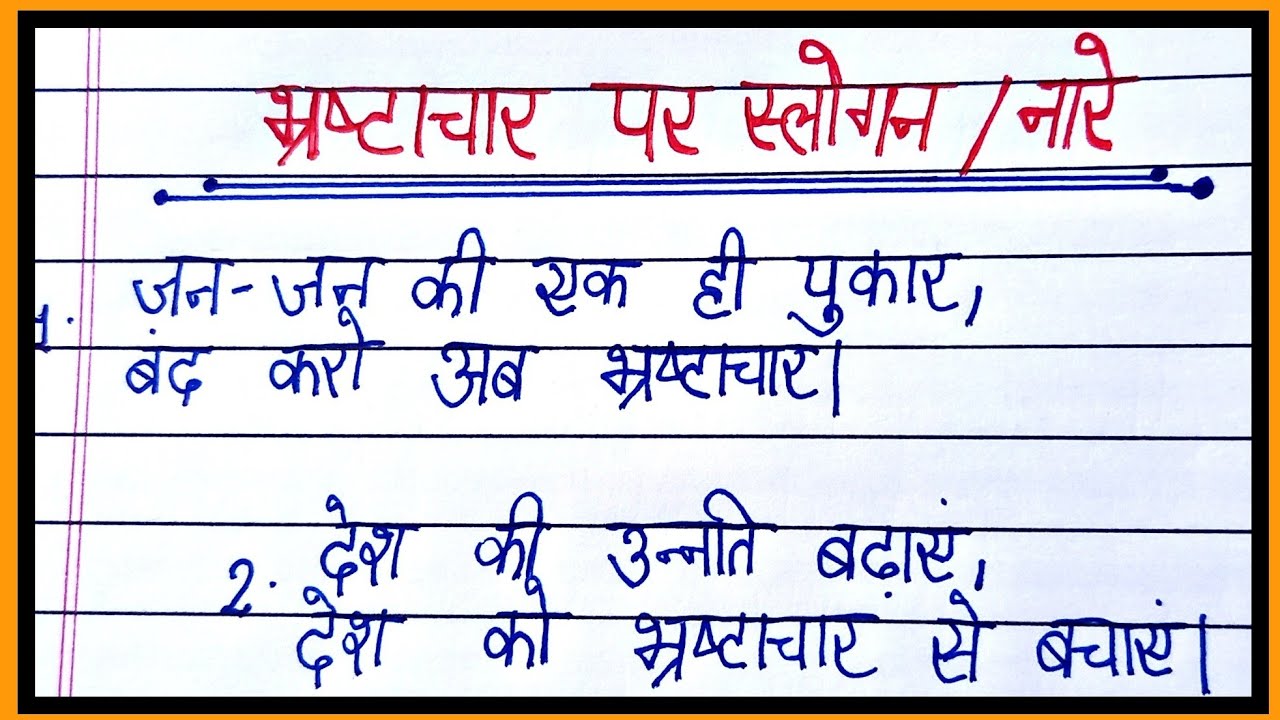 भ्रष्टाचार पर स्लोगन / नारे
1. जन-जन की एक ही पुकार,
बंद करो अब भ्रष्टाचार।
2. देश की उन्नति बढ़ाएं,
देश को भ्रष्टाचार से बचाएं।